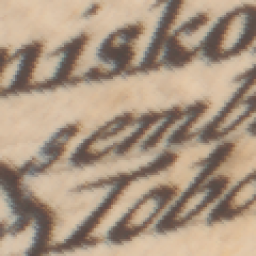 nisko
semb
Tobo